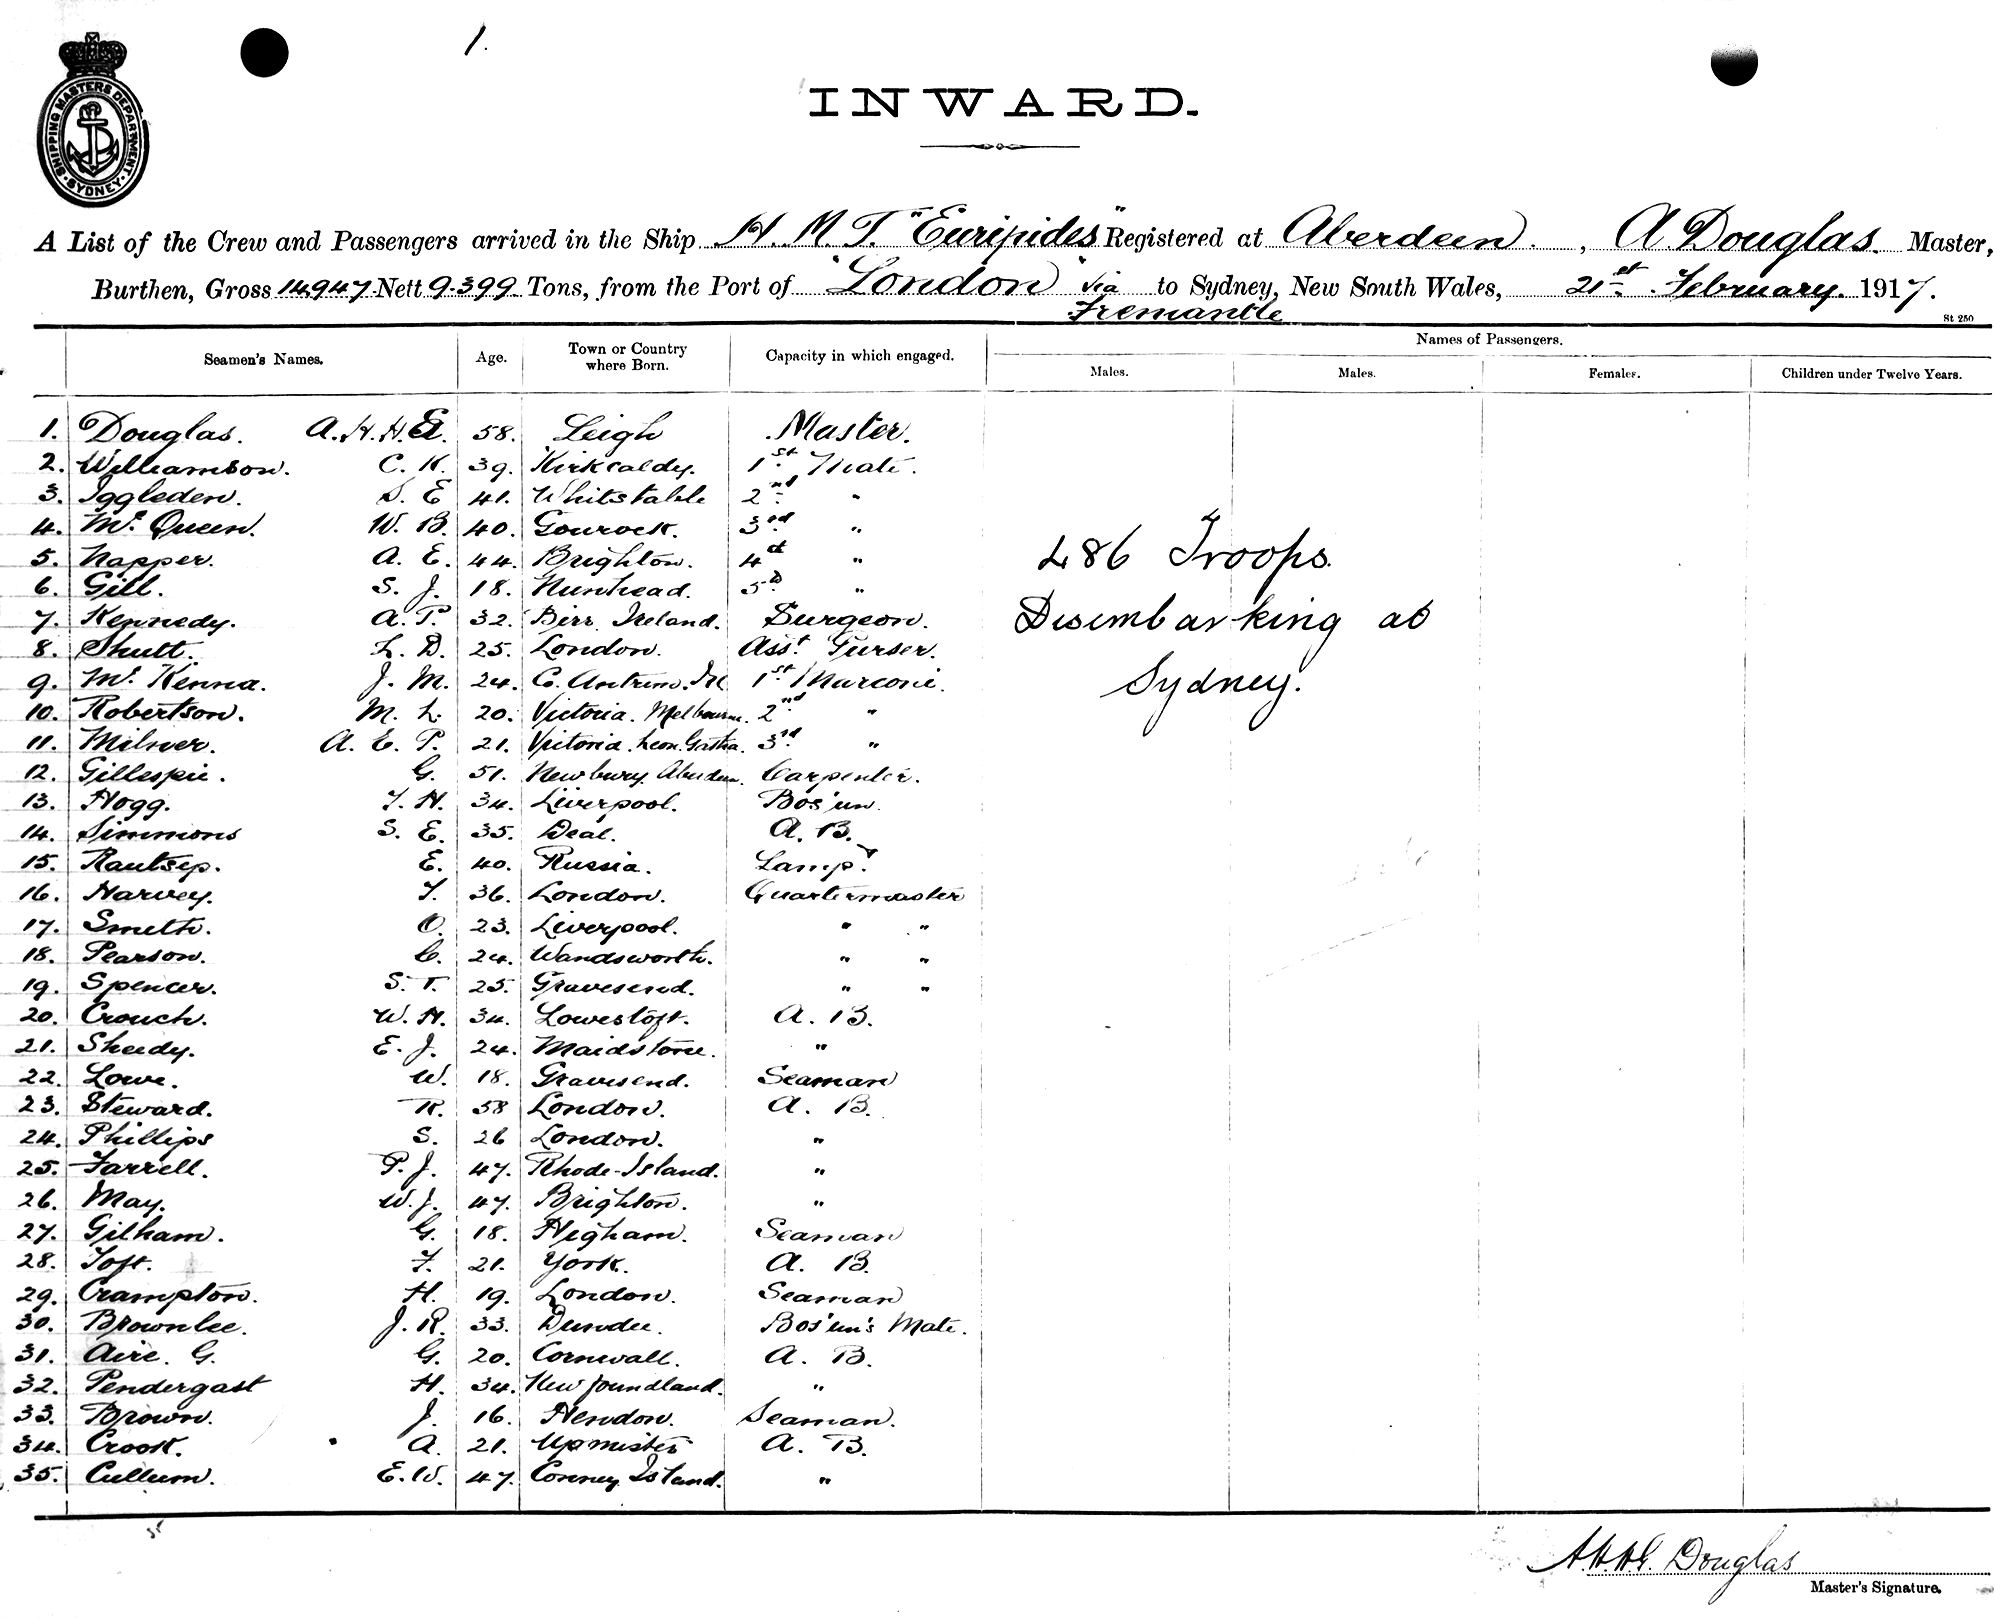 1.
SHIPPING MASTERS DEPARTMENT. SYDNEY.
INWARD.
A List of the Crew and Passengers arrived in the Ship H. M. T. "Euripides" Registered at Aberdeen, A Douglas. Master,
Burthen, Gross 14947 Nett 9.399 Tons, from the Port of "London" via to Sydney, New South Wales, 21st February. 1917.
Fremantle
St 250
Seamen's Names. Age. Town or Country where Born. Capacity in which engaged. Names of Passengers.
Males. Males. Females. Children under Twelve Years.
1. Douglas. A. H. H. 58. Leigh Master.
2. Williamson. C. K. 39. Kirkcaldy. 1st Mate.
3. Iggleden. S. E 41. Whitstable 2nd "
4. Mc Queen. W. B. 40. Gourock. 3rd "
5. Napper. A. E. 44. Brighton. 4th "
6. Gill. S. J. 18. Nunhead. 5th "
7. Kennedy. A. P. 32. Birr Ireland. Surgeon.
8. Shutt. L. D. 25. London. Asst Purser.
9. Mc Kenna. J. M. 24. C. Antrim. Ire 1st Marconi.
10. Robertson. M. L. 20. Victoria. Melbourne. 2nd "
11. Milner. A. E. P. 21. Victoria. Leon Gatha. 3rd "
12. Gillespie. G. 51. Newbury Aberdeen. Carpenter.
13. Hogg. T. H. 34. Liverpool. Bos'un.
14. Simmons S. E. 35. Deal. A. B.
15. Rautsep. E. 40. Russia. Lampr.
16. Harvey. T. 36. London. Quartermaster
17. Smeth. O. 23. Liverpool. " "
18. Pearson. C. 24. Wandsworth. " "
19. Spencer. S. T. 25. Gravesend. " "
20. Crouch. W. H. 34. Lowestoft. A. B.
21. Sheedy. E. J. 24. Maidstone. "
22. Lowe. W. 18. Gravesend. Seaman
23. Steward. R. 58 London. A. B.
24. Phillips S. 26 London. "
25. Farrell. P. J. 47. Rhode-Island. "
26. May. W. J. 47. Brighton. "
27. Gilham. G. 18. Higham. Seaman
28. Toft. F. 21. York. A. B.
29. Crampton. H. 19. London. Seaman
30. Brownlee. J. R. 33. Dundee. Bos'un's Mate.
31. Aire. G. G. 20. Cornwall. A. B.
32. Pendergast H. 34. Newfoundland. "
33. Brown. J. 16. Hendon. Seaman.
34. Crook. A. 21. Upminster A. B.
35. Cullum. E. W. 47. Conney Island. "
486 Troops.
Disembarking at
Sydney.
A.H.H.G. Douglas
Master's Signature.